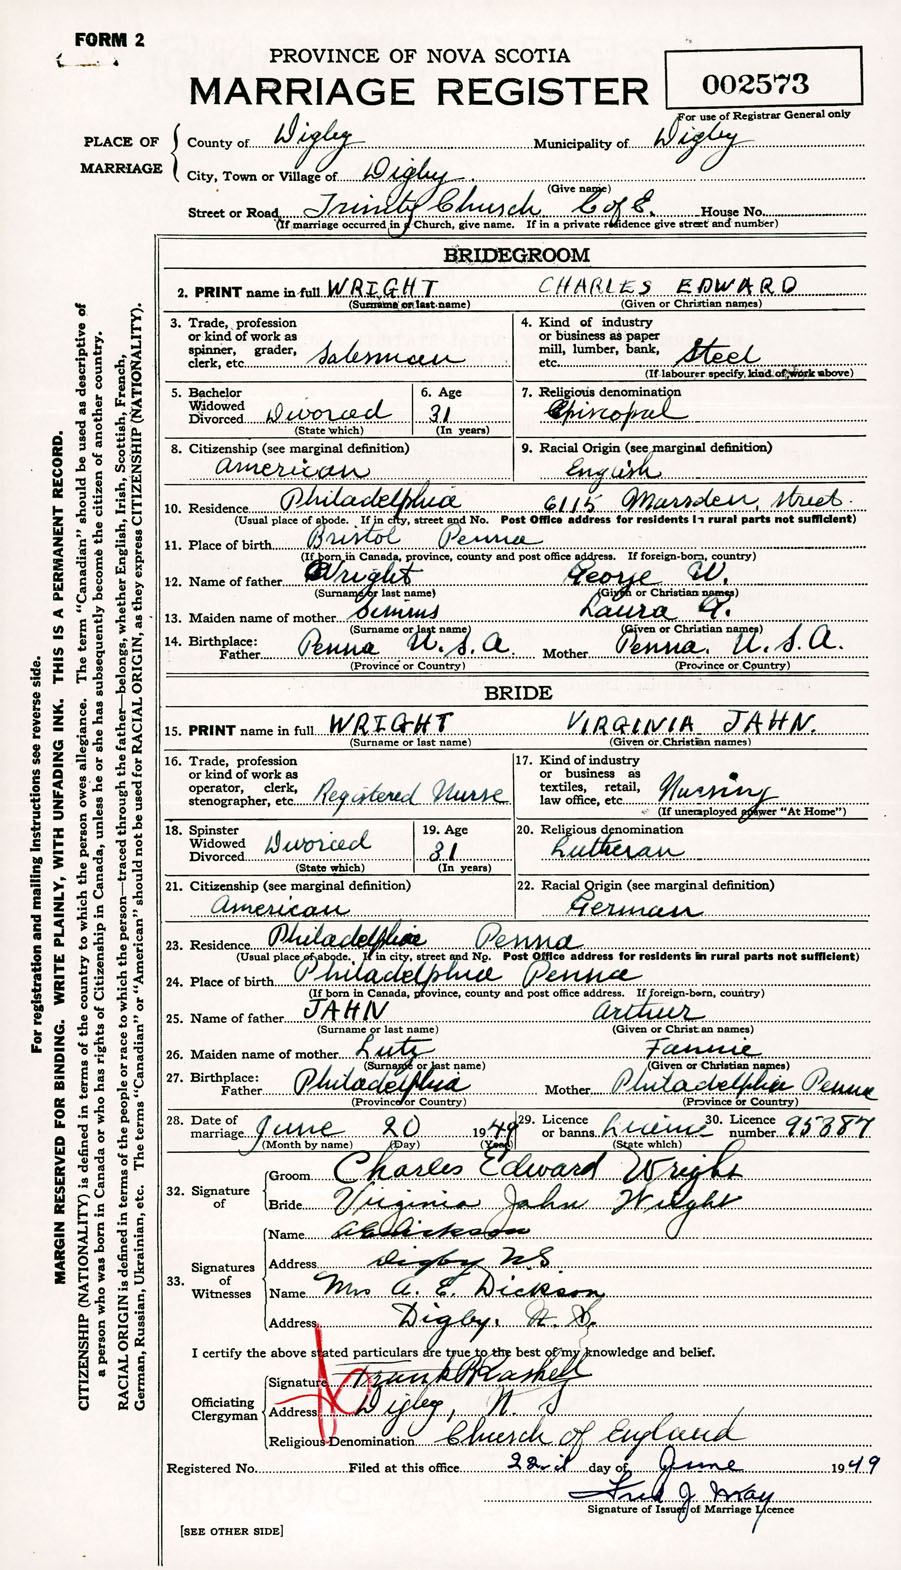 FORM 2
PROVINCE OF NOVA SCOTIA
MARRIAGE REGISTER
002573
For use of Registrar General only
PLACE OF MARRIAGE
County of Digby Municipality of Digby
City, Town or Village of Digby
(Give name)
Street or Road Trinity Church C of E. House No.
(If marriage occurred in a Church, give name. If in a private residence give street and number)
BRIDEGROOM
2. PRINT name in full WRIGHT CHARLES EDWARD
(Surname or last name) (Given or Christian names)
3. Trade, profession or kind of work as spinner, grader, clerk, etc. Salesman
4. Kind of industry or business as paper mill, lumber, bank, etc. Steel
(If labourer specify kind of work above)
5. Bachelor Widowed Divorced Divorced
(State which)
6. Age 31
(In years)
7. Religious denomination Episcopal
8. Citizenship (see marginal definition) American
9. Racial Origin (see marginal definition) English
10. Residence Philadelphia 6115 Marsden Street
(Usual place of abode. If in city, street and No. Post Office address for residents in rural parts not sufficient)
11. Place of birth Bristol Penna
(If born in Canada, province, county and post office address. If foreign-born, country)
12. Name of father Wright George W.
(Surname or last name) (Given or Christian names)
13. Maiden name of mother Simms Laura A.
(Surname or last name) (Given or Christian names)
14. Birthplace: Father Penna U.S.A. Mother Penna. U.S.A.
(Province or Country) (Province or Country)
BRIDE
15. PRINT name in full WRIGHT VIRGINIA JAHN.
(Surname or last name) (Given or Christian names)
16. Trade, profession or kind of work as operator, clerk, stenographer, etc. Registered Nurse
17. Kind of industry or business as textiles, retail, law office, etc. Nursing
(If unemployed answer "At Home")
18. Spinster Widowed Divorced Divorced
(State which)
19. Age 31
(In years)
20. Religious denomination Lutheran
21. Citizenship (see marginal definition) American
22. Racial Origin (see marginal definition) German
23. Residence Philadelphia Penna
(Usual place of abode. If in city, street and No. Post Office address for residents in rural parts not sufficient)
24. Place of birth Philadelphia Penna
(If born in Canada, province, county and post office address. If foreign-born, country)
25. Name of father JAHN Arthur
(Surname or last name) (Given or Christian names)
26. Maiden name of mother Lutz Fannie
(Surname or last name) (Given or Christian names)
27. Birthplace: Father Philadelphia Mother Philadelphia Penna
(Province or Country) (Province or Country)
28. Date of marriage June 20 1949
(Month by name) (Day) (Year)
29. Licence or banns License
(State which)
30. Licence number 95387
32. Signature of
Groom Charles Edward Wright
Bride Virginia Jahn Wright
33. Signatures of Witnesses
Name A E Dickson
Address Digby N.S.
Name Mrs A. E. Dickson
Address Digby. N. S.
I certify the above stated particulars are true to the best of my knowledge and belief.
Officiating Clergyman
Signature Frank R Gaskell
Address Digby, N. S
Religious Denomination Church of England
Registered No. Filed at this office 22nd day of June 1949
Fred J May
Signature of Issuer of Marriage Licence
[SEE OTHER SIDE]
For registration and mailing instructions see reverse side.
MARGIN RESERVED FOR BINDING. WRITE PLAINLY, WITH UNFADING INK. THIS IS A PERMANENT RECORD.
CITIZENSHIP (NATIONALITY) is defined in terms of the country to which the person owes allegiance. The term "Canadian" should be used as descriptive of
a person who was born in Canada or who has rights of Citizenship in Canada, unless he or she has subsequently become the citizen of another country.
RACIAL ORIGIN is defined in terms of the people or race to which the person—traced through the father—belongs, whether English, Irish, Scottish, French,
German, Russian, Ukrainian, etc. The terms "Canadian" or "American" should not be used for RACIAL ORIGIN, as they express CITIZENSHIP (NATIONALITY).